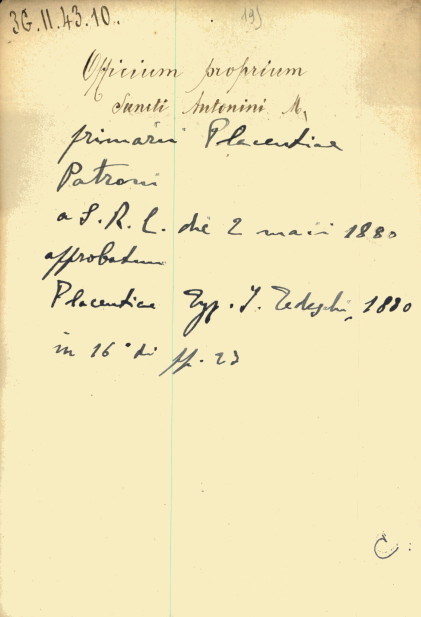 3G.II.43.10.
195
Officium proprium
Sancti Antonini M,
primarii Placentiae
Patroni
a S. R. C. die 2 maii 1880
approbatum
Placentiae Typ. J. Tedeschi, 1880
in 16° di pp. 23
C.